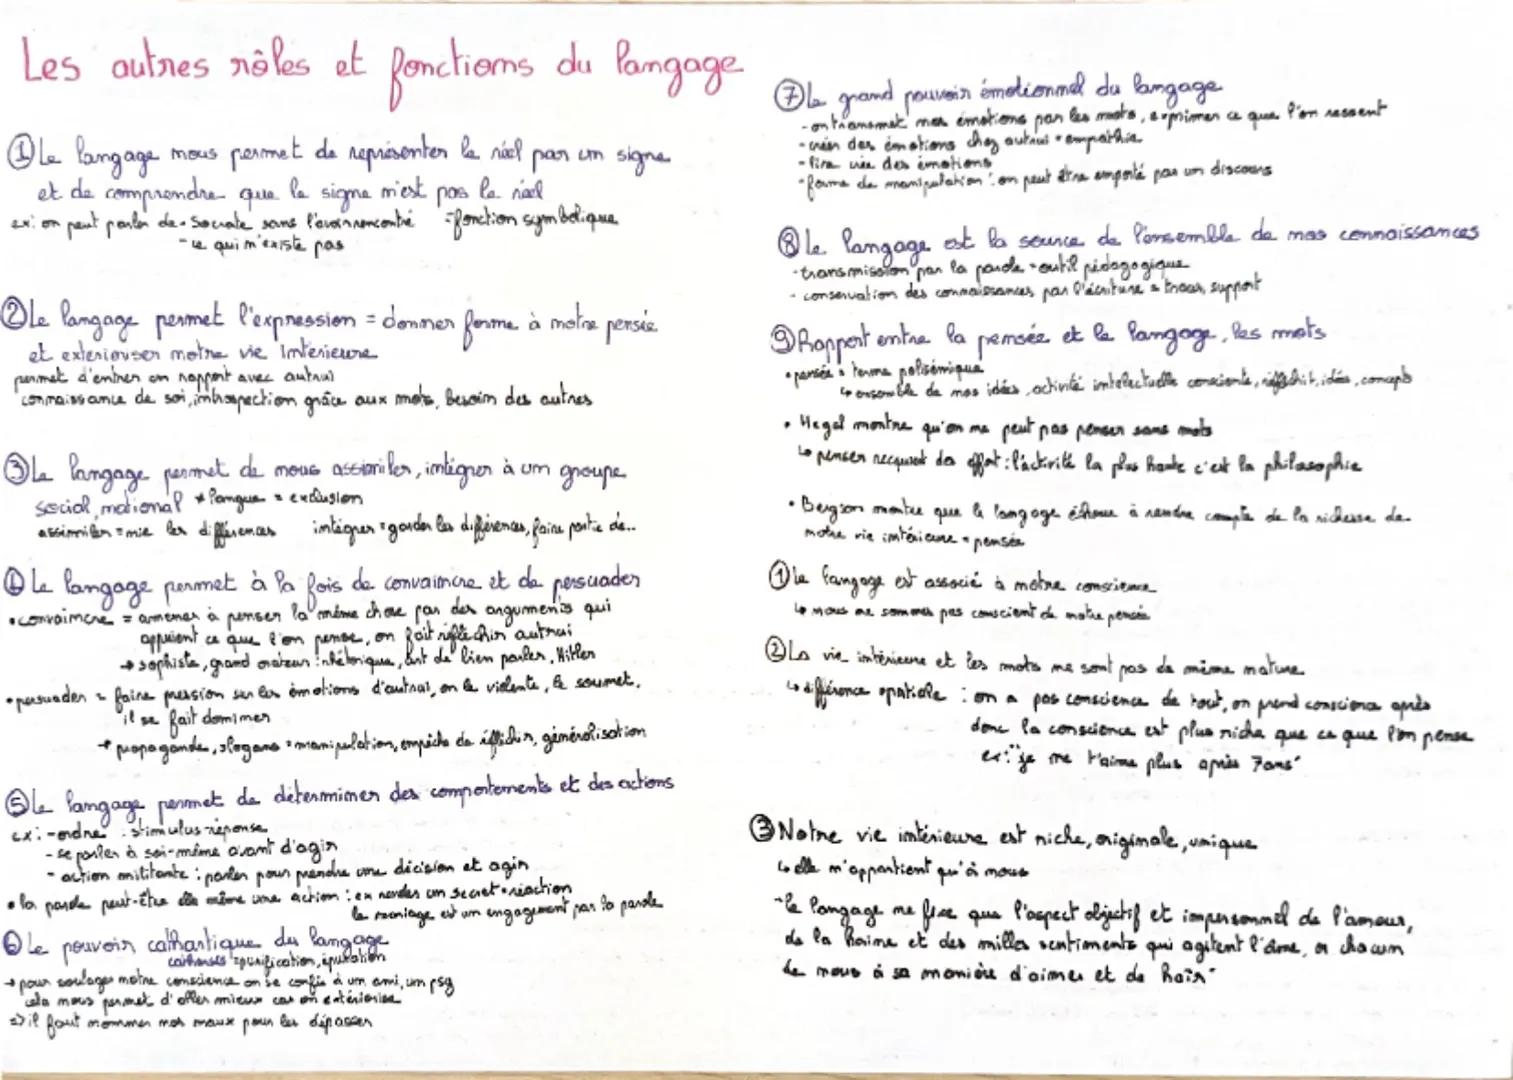 Les autres rôles et fonctions du langage
① Le langage nous permet de représenter le réel par un signe
et de comprendre que le signe n'est pas le réel
ex: on peut parler de - Socrate sans l'avoir rencontré = fonction symbolique
- ce qui n'existe pas
② Le langage permet l'expression = donner forme à notre pensée
et exteriouser notre vie interieure
permet d'entrer en rapport avec autrui
connaissance de soi, introspection grâce aux mots, besoin des autres
③ Le langage permet de nous assimiler, intégrer à un groupe
social, national * langue = exclusion
assimiler = nie les différences intégrer = garder les différences, faire partie de..
④ Le langage permet à la fois de convaincre et de persuader
• convaincre = amener à penser la même chose par des arguments qui
appuient ce que l'on pense, on fait réfléchir autrui
→ sophiste, grand orateur : rhétorique, art de bien parler, Hitler
• persuader = faire pression sur les émotions d'autrui, on le violente, le soumet,
il se fait dominer
→ propagande, slogans = manipulation, empêche de réfléchir, généralisation
⑤ Le langage permet de déterminer des comportements et des actions
ex: - ordre : stimulus-réponse
- se parler à soi-même avant d'agir
- action militante : parler pour prendre une décision et agir
• la parole peut-être elle même une action : ex secret = réaction
le mariage est un engagement par la parole
⑥ Le pouvoir cathartique du langage
catharsis = purification, épuration
→ pour soulager notre conscience on se confie à un ami, un psy
cela nous permet d'aller mieux car on extériorise
=> il faut nommer nos maux pour les dépasser
⑦ Le grand pouvoir émotionnel du langage
- on transmet nos émotions par les mots, exprimer ce que l'on ressent
- créer des émotions chez autrui = empathie
- lire crée des émotions
- forme de manipulation : on peut être emporté par un discours
⑧ Le langage est la source de l'ensemble de nos connaissances
- transmission par la parole = outil pédagogique
- conservation des connaissances par l'écriture = traces, support
⑨ Rapport entre la pensée et le langage, les mots
• pensée = terme polisémique
↳ ensemble de nos idées, activité intelectuelle consciente, réfléchit, idées, concepts
• Hegel montre qu'on ne peut pas penser sans mots
↳ penser requiert des effort : l'activité la plus haute c'est la philosophie
• Bergson montre que le langage échoue à rendre compte de la richesse de
notre vie intérieure = pensée
① le langage est associé à notre conscience
↳ nous ne sommes pas conscient de notre pensée
② La vie intérieure et les mots ne sont pas de même nature
↳ différence spatiale : on a pas conscience de tout, on prend conscience après
donc la conscience est plus riche que ce que l'on pense
ex: "je ne t'aime plus après 7ans"
③ Notre vie intérieure est riche, originale, unique
↳ elle n'appartient qu'à nous
- "le langage ne fixe que l'aspect objectif et impersonnel de l'amour,
de la haine et des milles sentiments qui agitent l'âme, or chacun
de nous à sa manière d'aimer et de haïr"